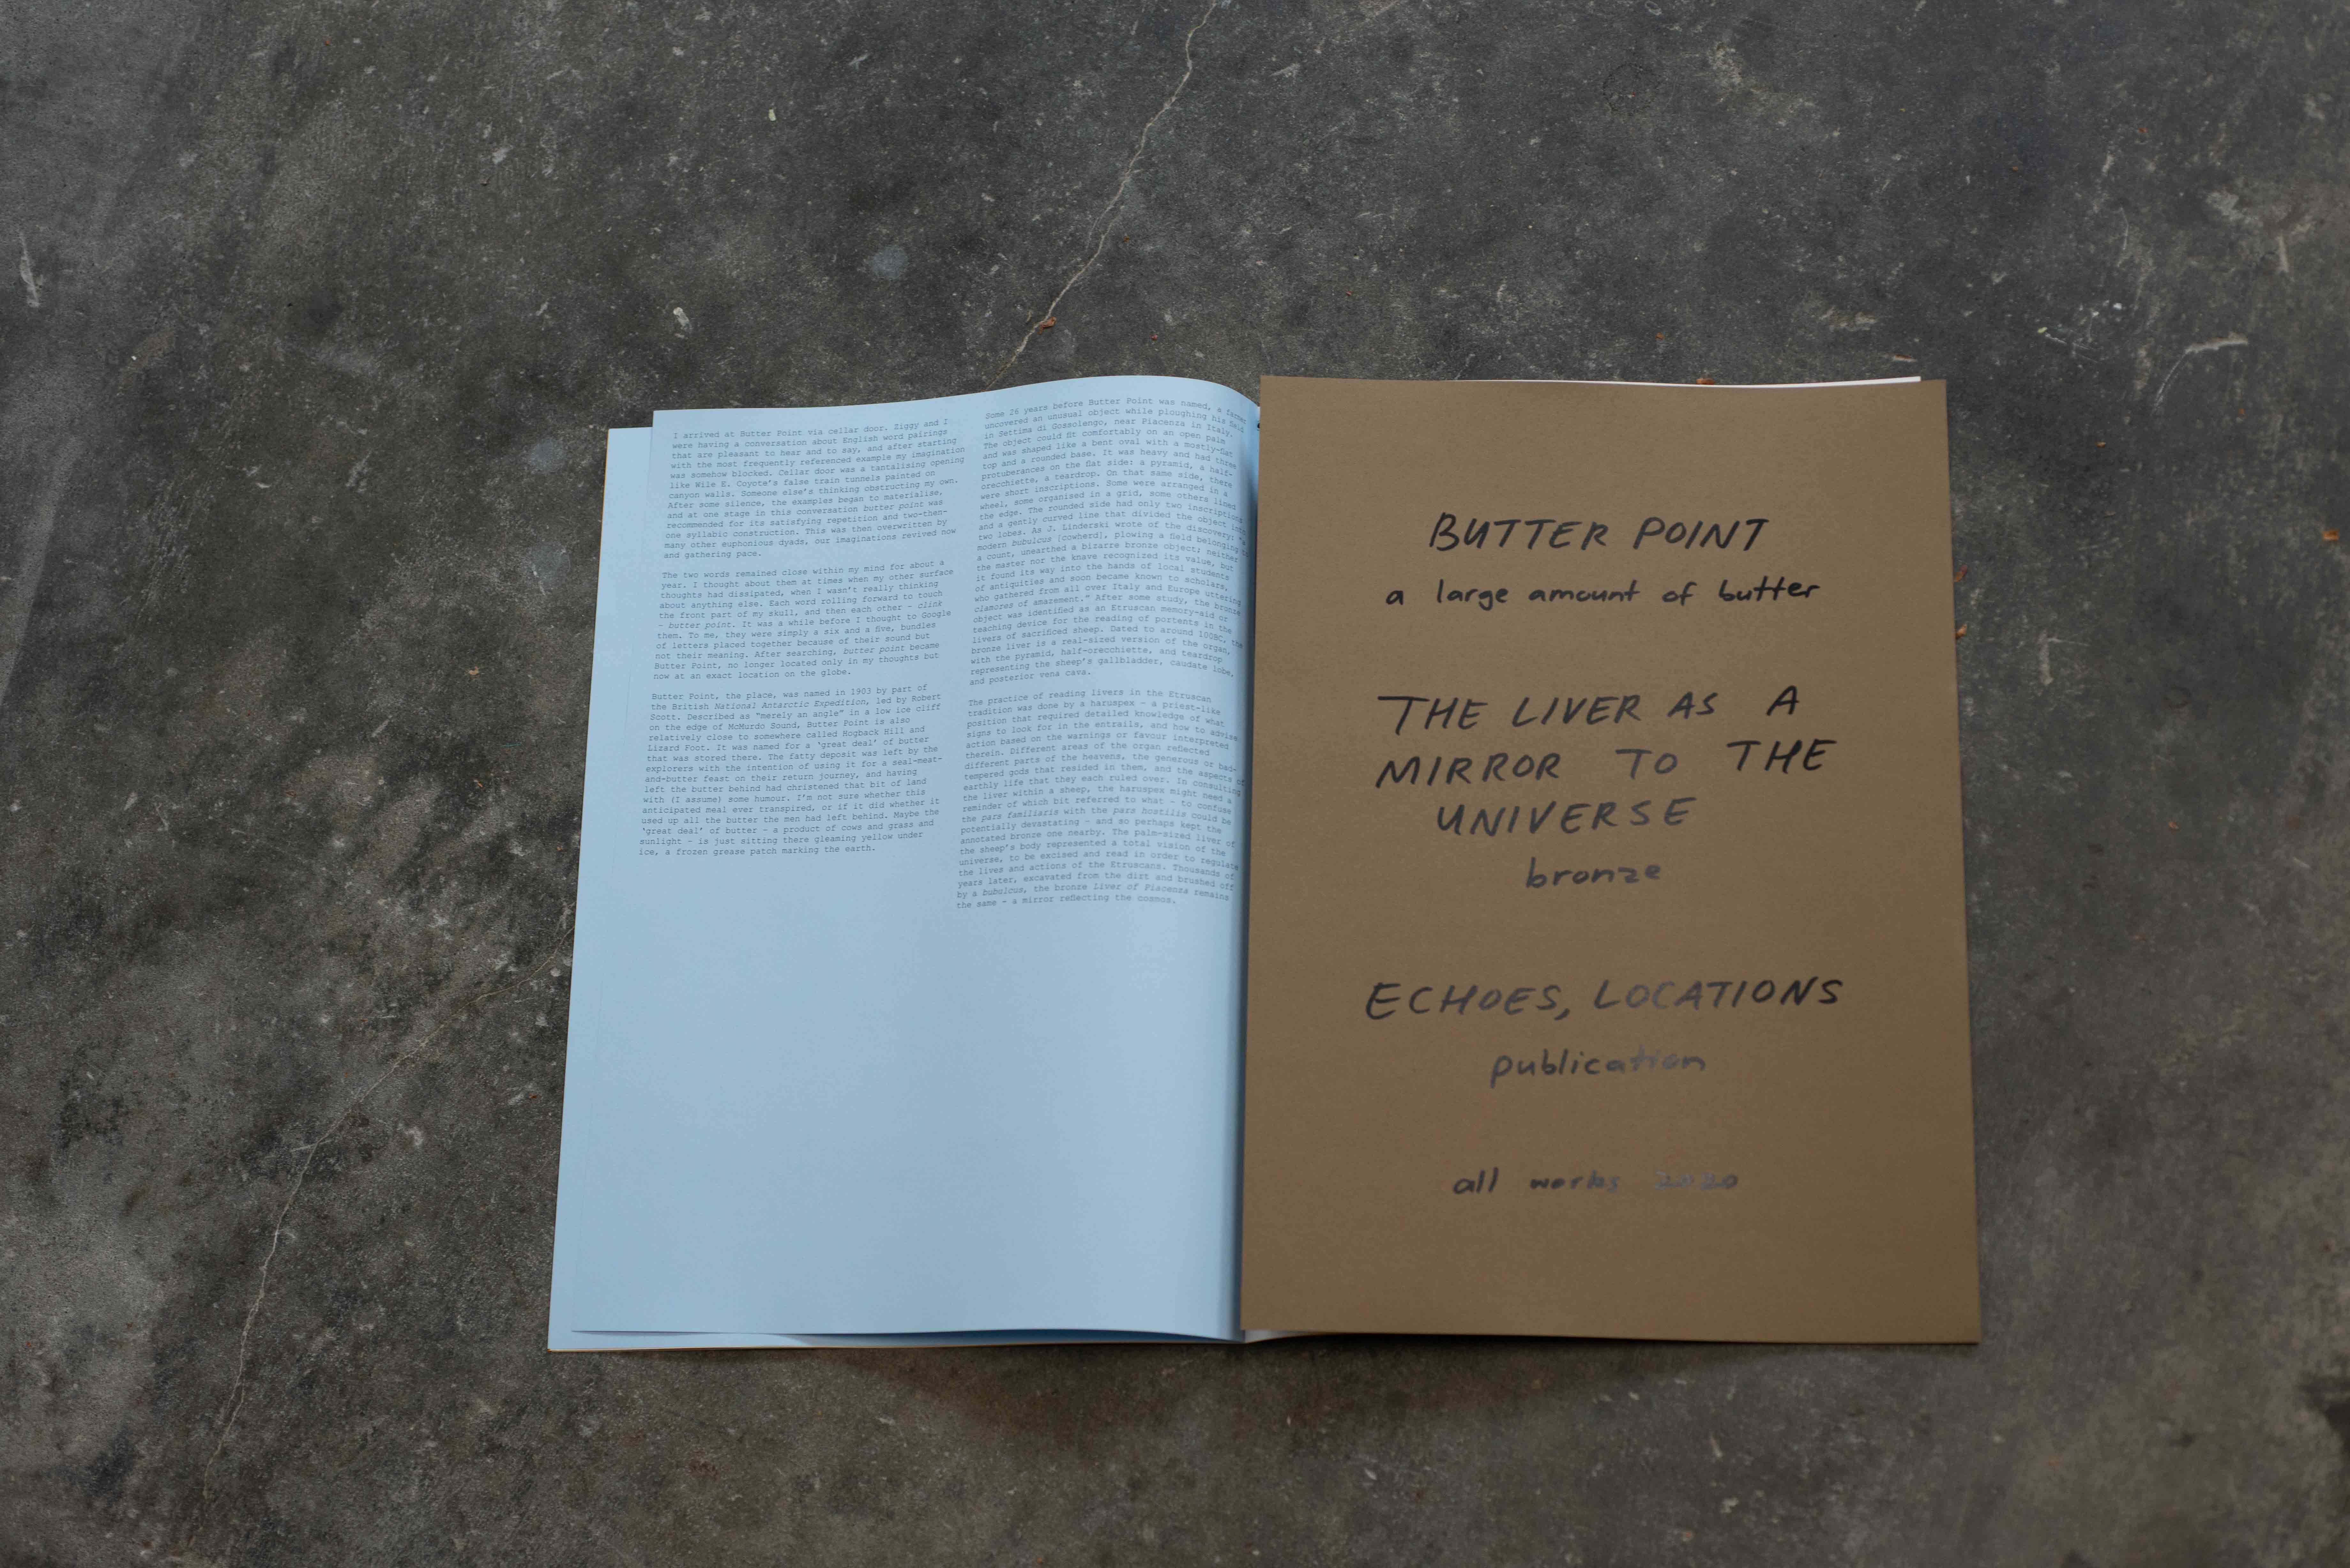 I arrived at Butter Point via cellar door. Ziggy and I
were having a conversation about English word pairings
that are pleasant to hear and to say, and after starting
with the most frequently referenced example my imagination
was somehow blocked. Cellar door was a tantalising opening
like Wile E. Coyote's false train tunnels painted on
canyon walls. Someone else's thinking obstructing my own.
After some silence, the examples began to materialise,
and at one stage in this conversation butter point was
recommended for its satisfying repetition and two-then-
one syllabic construction. This was then overwritten by
many other euphonious dyads, our imaginations revived now
and gathering pace.
The two words remained close within my mind for about a
year. I thought about them at times when my other surface
thoughts had dissipated, when I wasn't really thinking
about anything else. Each word rolling forward to touch
the front part of my skull, and then each other – clink
– butter point. It was a while before I thought to Google
them. To me, they were simply a six and a five, bundles
of letters placed together because of their sound but
not their meaning. After searching, butter point became
Butter Point, no longer located only in my thoughts but
now at an exact location on the globe.
Butter Point, the place, was named in 1903 by part of
the British National Antarctic Expedition, led by Robert
Scott. Described as "merely an angle" in a low ice cliff
on the edge of McMurdo Sound, Butter Point is also
relatively close to somewhere called Hogback Hill and
Lizard Foot. It was named for a 'great deal' of butter
that was stored there. The fatty deposit was left by the
explorers with the intention of using it for a seal-meat-
and-butter feast on their return journey, and having
left the butter behind had christened that bit of land
with (I assume) some humour. I'm not sure whether this
anticipated meal ever transpired, or if it did whether it
used up all the butter the men had left behind. Maybe the
'great deal' of butter – a product of cows and grass and
sunlight – is just sitting there gleaming yellow under
ice, a frozen grease patch marking the earth.
Some 26 years before Butter Point was named, a farmer
uncovered an unusual object while ploughing his field
in Settima di Gossolengo, near Piacenza in Italy.
The object could fit comfortably on an open palm
and was shaped like a bent oval with a mostly-flat
top and a rounded base. It was heavy and had three
protuberances on the flat side: a pyramid, a half-
orecchiette, a teardrop. On that same side, there
were short inscriptions. Some were arranged in a
wheel, some organised in a grid, some others lined
the edge. The rounded side had only two inscriptions
and a gently curved line that divided the object into
two lobes. As J. Linderski wrote of the discovery:
modern bubulcus [cowherd], plowing a field belonging to
a count, unearthed a bizarre bronze object; neither
the master nor the knave recognized its value, but
it found its way into the hands of local students
of antiquities and soon became known to scholars,
who gathered from all over Italy and Europe uttering
clamores of amazement." After some study, the bronze
object was identified as an Etruscan memory-aid or
teaching device for the reading of portents in the
livers of sacrificed sheep. Dated to around 100BC, the
bronze liver is a real-sized version of the organ,
with the pyramid, half-orecchiette, and teardrop
representing the sheep's gallbladder, caudate lobe,
and posterior vena cava.
The practice of reading livers in the Etruscan
tradition was done by a haruspex – a priest-like
position that required detailed knowledge of what
signs to look for in the entrails, and how to advise
action based on the warnings or favour interpreted
therein. Different areas of the organ reflected
different parts of the heavens, the generous or bad-
tempered gods that resided in them, and the aspects of
earthly life that they each ruled over. In consulting
the liver within a sheep, the haruspex might need a
reminder of which bit referred to what – to confuse
the pars familiaris with the pars hostilis could be
potentially devastating – and so perhaps kept the
annotated bronze one nearby. The palm-sized liver of
the sheep's body represented a total vision of the
universe, to be excised and read in order to regulate
the lives and actions of the Etruscans. Thousands of
years later, excavated from the dirt and brushed off
by a bubulcus, the bronze liver of Piacenza remains
the same – a mirror reflecting the cosmos.
BUTTER POINT
a large amount of butter
THE LIVER AS A
MIRROR TO THE
UNIVERSE
bronze
ECHOES, LOCATIONS
publication
all works 2020